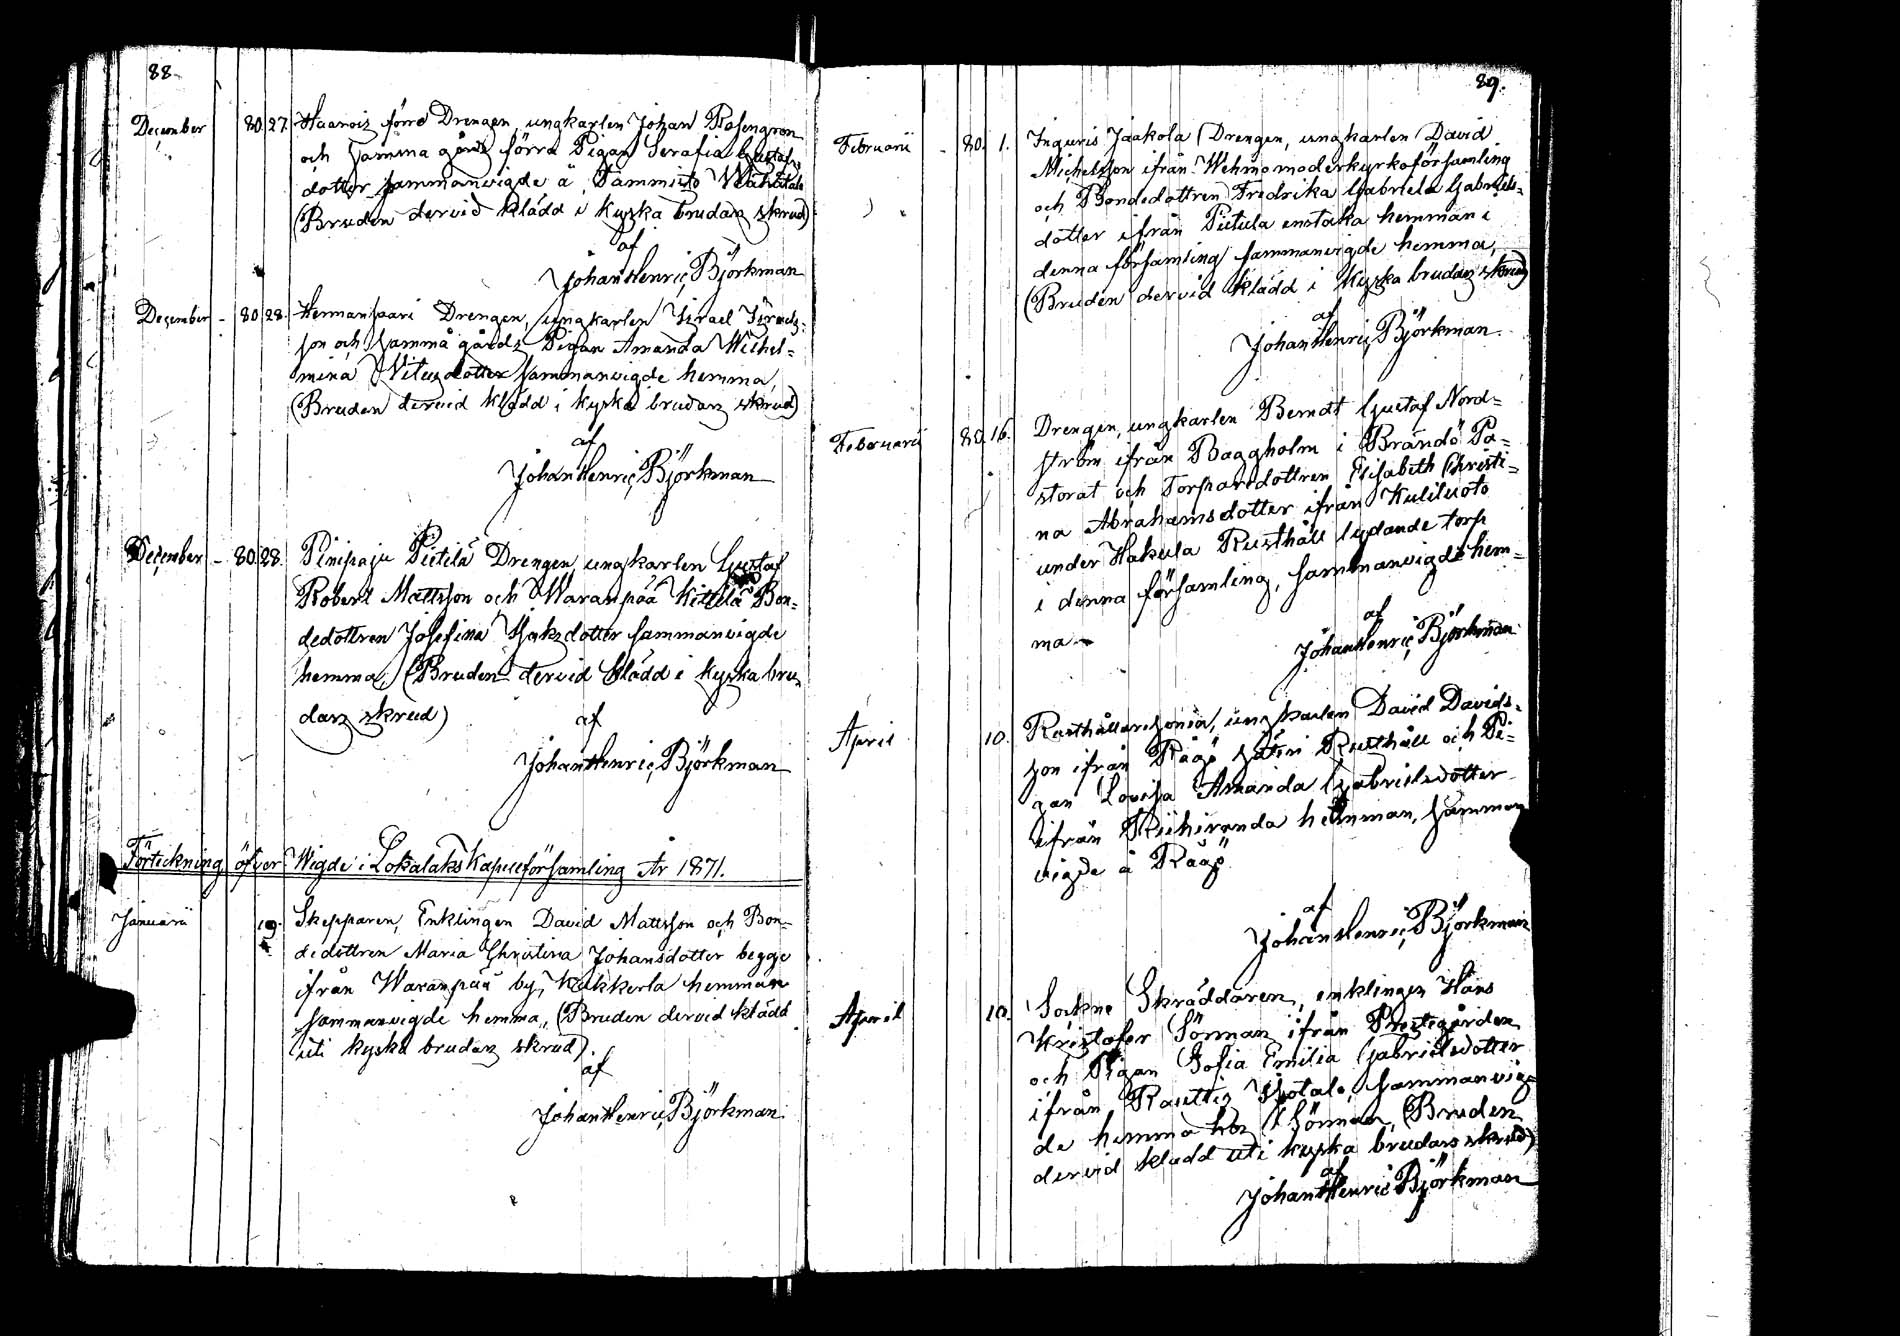 88.
December 80. 27. Haarois förre Drengen, ungkarlen Johan Rosengren
och samma gårds förra Pigan Serafia Gustafs
dotter sammanvigde å Tammisto
(Bruden dervid klädd i kyska brudars skrud)
af
Johan Henric Björkman
December - 80. 28. Hermansaari Drengen, ungkarlen Israel Israels-
son och samma gårds Pigan Amanda Wilhel-
mina Vitusdotter sammanvigde hemma,
(Bruden dervid klädd i kyska brudars skrud)
af
Johan Henric Björkman
December - 80. 28. Pinipaju Pietilä Drengen, ungkarlen Gustaf
Robert Mattsson och Waranpää Kittilä Bon-
dedottren Josefina Isaksdotter sammanvigde
hemma, (Bruden dervid klädd i kyska bru-
dars skrud)
af
Johan Henric Björkman
Förtickning öfver Wigde i Lokalaks Kapellförsamling År 1871.
Januarii 19. Skepparen, Enklingen David Mattsson och Bon-
dedottren Maria Christina Johansdotter begge
ifrån Waranpää by, Kukkerla hemman
sammanvigde hemma, (Bruden dervid klädd
uti kyska brudars skrud).
af
Johan Henric Björkman
89.
Februarii - 80. 1. Inguris Jaakola Drengen, ungkarlen David
Michelsson ifrån Wehmo moderkyrkoförsamling
och Bondedottren Fredrika Gabriela Gabriels-
dotter ifrån Pietula enstaka hemman i
denna församling sammanvigde hemma,
(Bruden dervid klädd i kyska brudars skrud)
af
Johan Henric Björkman.
Februarii 80. 16. Drengen, ungkarlen Berndt Gustaf Nord-
ström ifrån Baggholm i Brändö Pa-
storat och Torparedottren Elisabeth Christi-
na Abrahamsdotter ifrån Kuliluoto
under Hakula Rusthåll lydande torp
i denna församling, sammanvigde hem-
ma -
af
Johan Henric Björkman
April 10. Rusthållaresonen, ungkarlen David Davids-
son ifrån Rågö Säteri Rusthåll och Pi-
gan Lovisa Amanda Gabrielsdotter
ifrån Riihiranda hemman, samman
vigde å Rågö
af
Johan Henric Björkman
April 10. Sockne Skräddaren, enklingen Hans
Kristofer Sörman ifrån Prestegården
och Pigan Sofia Emilia Gabrielsdotter
ifrån Rauttis sammanvig-
de hemma hos Sörman, (Bruden
dervid klädd uti kyska brudars skrud)
af
Johan Henric Björkman